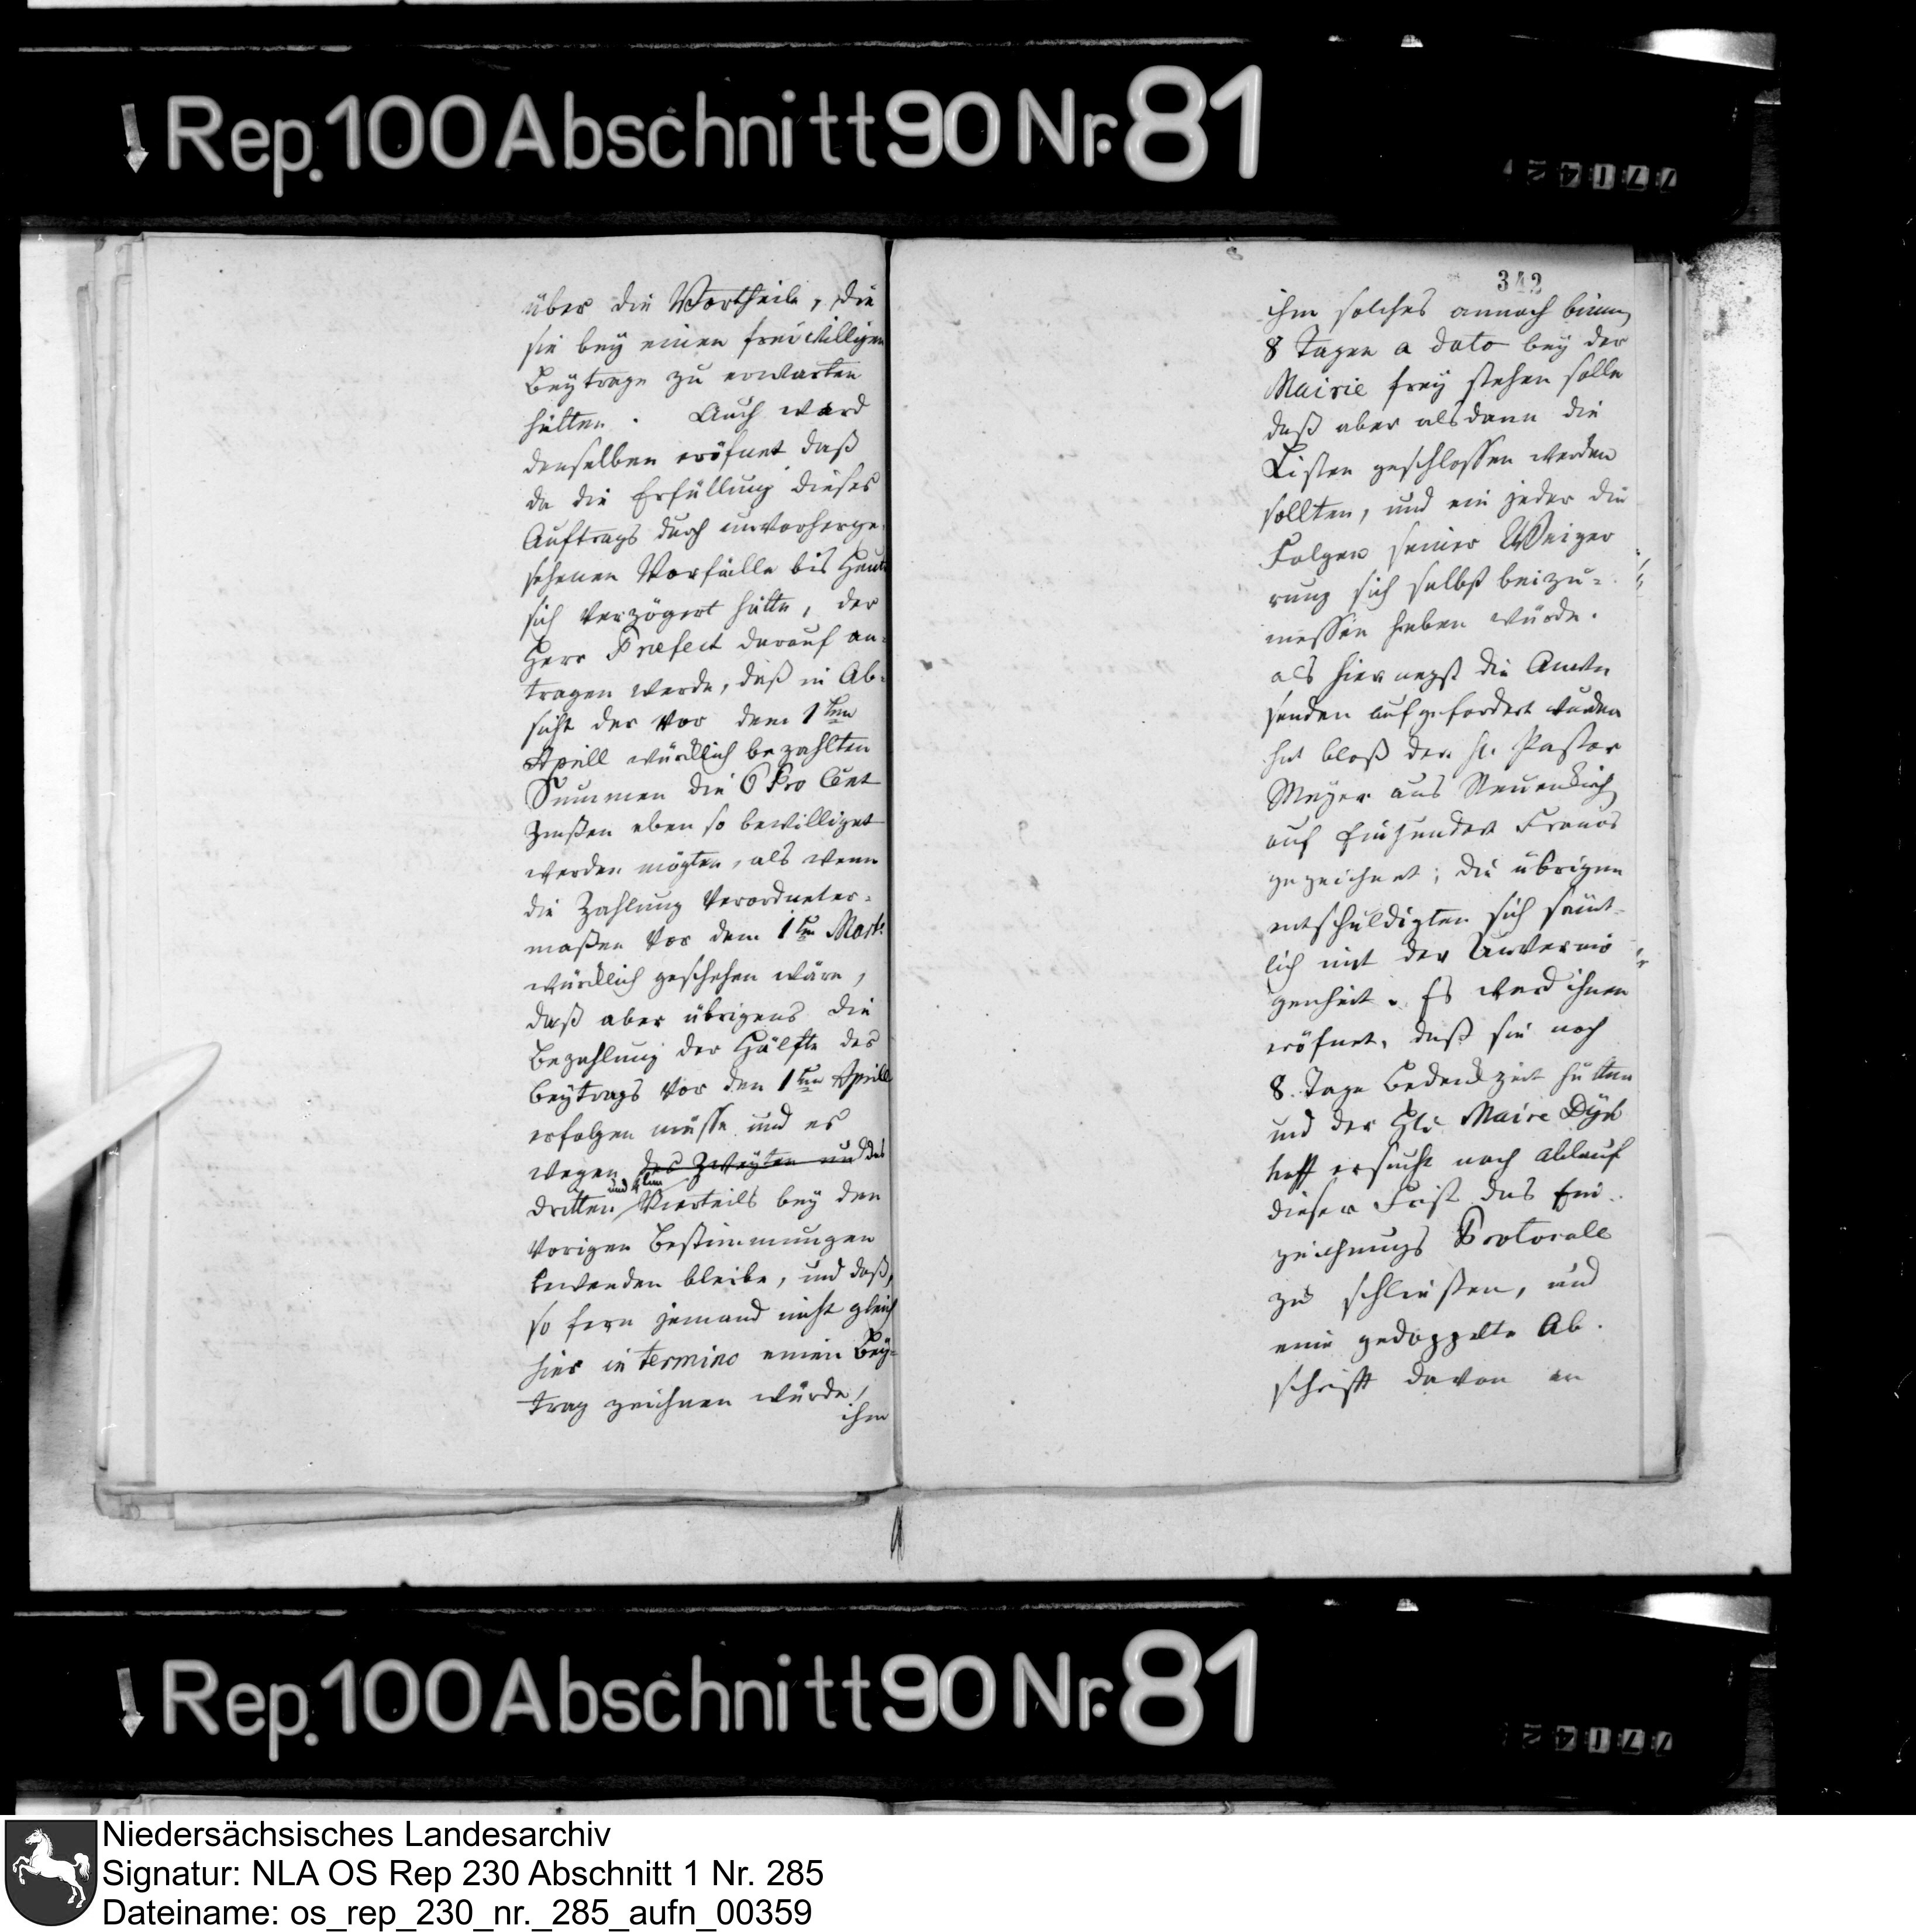 Rep. 100 Abschnitt 90 Nr. 81
über die Vortheile, die
sie bey einen freiwilligen
Beytrage zu erwarten
hätten. Auch ward
denselben eröfnet daß
da die Erfüllung dieses
Auftrags durch unvorherge-
sehenen Vorfälle bis Heute
sich verzögert hätte, der
Herr Præfect darauf an-
tragen werde, daß in Ab-
sicht der vor dem 1ten
Aprill würcklich bezahlten
Summen die 6 Pro Cent
Zinßen eben so bewilliget
werden mögten, als wenn
die Zahlung verordneter-
maßen vor dem 1ten Martz
würcklich geschehen wäre,
daß aber übrigens die
Bezahlung der Hälfte des
Beytrags vor den 1ten Aprill
erfolgen müsse und es
wegen des Zweyten und des
dritten und 4ten Vierteils bey den
vorigen Bestimmungen
bewenden bleibe, und daß,
so fern jemand nicht gleich
hier in termino einen Bey-
trag zeichnen würde,
ihm
342
ihm solches annoch binnen
8 Tagen a dato bey der
Mairie frey stehen solle
daß aber alsdann die
Listen geschlossen werden
sollten, und ein jeder die
Folgen seiner Weiger
rung sich selbst beizu-
messen haben würde.
als hiernegst die Anwe
senden aufgefordert wurden
hat bloß der H. Pastor
Meyer aus Neuenkirch
auf Einhundert Francs
gezeichnet; die übrigen
entschuldigten sich sämt-
lich mit der Unvermö
genheit. Es ward ihnen
eröfnet, daß sie noch
8 Tage Bedenckzeit hätten
und der Hr. Maire Dyck
hoff ersucht nach Ablauf
dieser Frist das Ein-
zeichnungs Protocoll
zu schließen, und
eine gedoppelte Ab-
schrift davon an
Rep. 100 Abschnitt 90 Nr. 81
Niedersächsisches Landesarchiv
Signatur: NLA OS Rep 230 Abschnitt 1 Nr. 285
Dateiname: os_rep_230_nr._285_aufn_00359